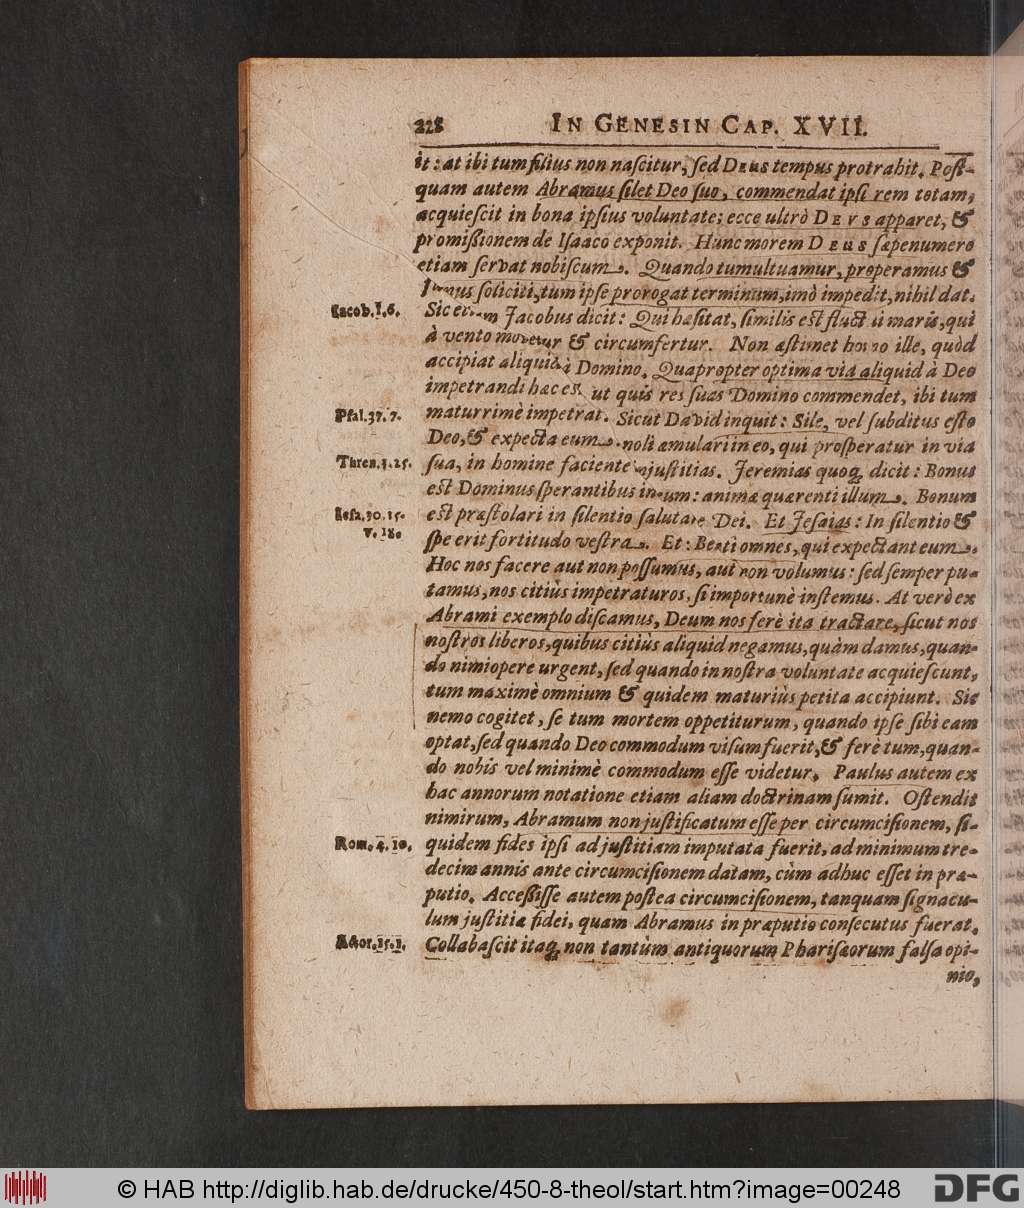 228 IN GENESIN CAP. XVII.
it: at ibi tum filius non naſcitur, ſed DEUS tempus protrahit. Poſt-
quam autem Abramus ſilet Deo ſuo, commendat ipſi rem totam,
acquieſcit in bona ipſius voluntate; ecce ultrò DEVS apparet, &
promiſſionem de Iſaaco exponit. Hunc morem DEUS ſæpenumero
etiam ſervat nobiſcum. Quando tumultuamur, properamus &
ſoliciti, tum ipſe prorogat terminum, imò impedit, nihil dat.
Jacob. 1. 6.
Sic Jacobus dicit: Qui hæſitat, ſimilis eſt fluctui maris, qui
à vento movetur & circumfertur. Non æſtimet homo ille, quòd
accipiat aliquid à Domino. Quapropter optima via aliquid à Deo
impetrandi hæc eſt, ut quis res ſuas Domino commendet, ibi tum
Pſal. 37. 7.
maturrimè impetrat. Sicut David inquit: Sile, vel ſubditus eſto
Deo, & expecta eum. noli æmulari in eo, qui proſperatur in via
Thren. 3. 25.
ſua, in homine faciente injuſtitias. Jeremias quoq; dicit: Bonus
eſt Dominus ſperantibus in eum: animæ quærenti illum. Bonum
Ieſa. 30. 15.
eſt præſtolari in ſilentio ſalutare Dei. Et Jeſaias: In ſilentio &
v. 18.
ſpe erit fortitudo veſtra. Et: Beati omnes, qui expectant eum.
Hoc nos facere aut non poſſumus, aut non volumus: ſed ſemper pu-
tamus, nos citiùs impetraturos, ſi importunè inſtemus. At verò ex
Abrami exemplo diſcamus, Deum nos ferè ita tractare, ſicut nos
noſtros liberos, quibus citiùs aliquid negamus, quàm damus, quan-
do nimiopere urgent, ſed quando in noſtra voluntate acquieſcunt,
tum maximè omnium & quidem maturiùs petita accipiunt. Sic
nemo cogitet, ſe tum mortem oppetiturum, quando ipſe ſibi eam
optat, ſed quando Deo commodum viſum fuerit, & ferè tum, quan-
do nobis vel minimè commodum eſſe videtur. Paulus autem ex
hac annorum notatione etiam aliam doctrinam ſumit. Oſtendit
nimirum, Abramum non juſtificatum eſſe per circumciſionem, ſi-
Rom. 4. 10.
quidem fides ipſi ad juſtitiam imputata fuerit, ad minimum tre-
decim annis ante circumciſionem datam, cùm adhuc eſſet in præ-
putio. Acceſſiſſe autem poſtea circumciſionem, tanquam ſignacu-
lum juſtitiæ fidei, quam Abramus in præputio conſecutus fuerat.
Actor. 15. 1.
Collabaſcit itaq; non tantùm antiquorum Phariſæorum falſa opi-
nio,
© HAB http://diglib.hab.de/drucke/450-8-theol/start.htm?image=00248
DFG